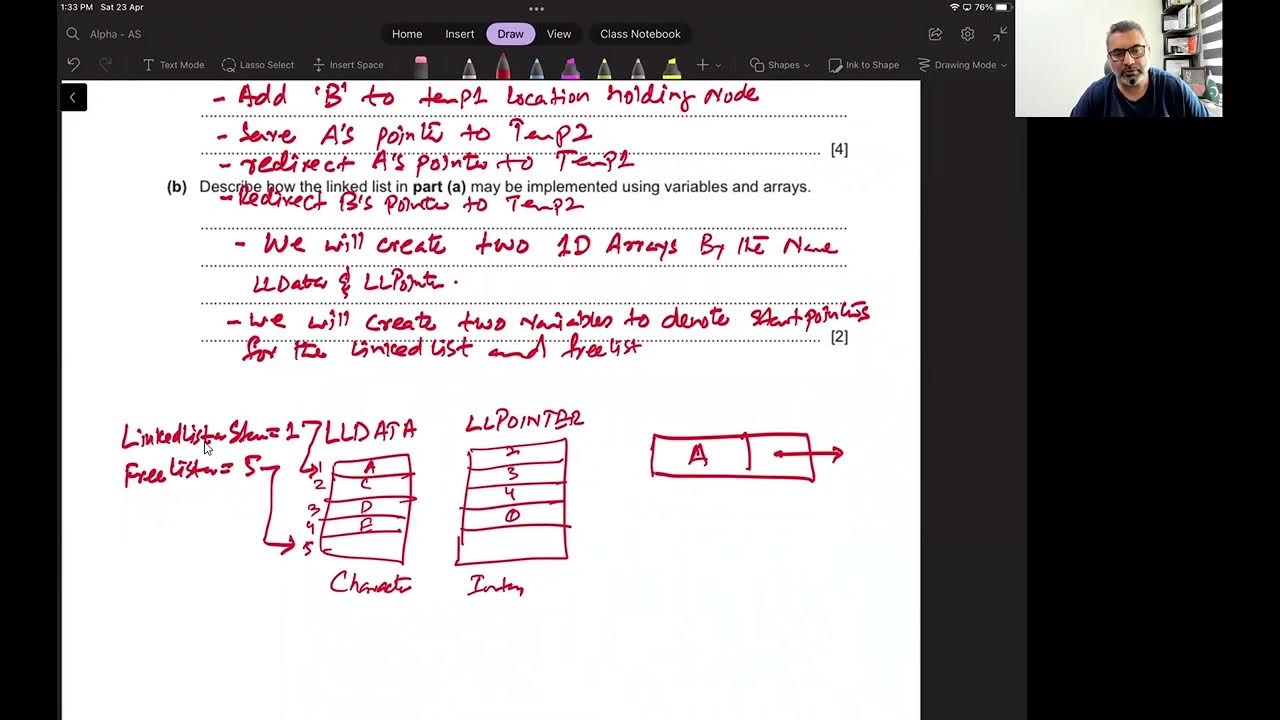 1:33 PM Sat 23 Apr
76%
Alpha - AS
Home Insert Draw View Class Notebook
Text Mode Lasso Select Insert Space Shapes Ink to Shape Drawing Mode
- Add 'B' to temp1 location holding Node
- Save A's pointer to Temp2
[4]
- redirect A's pointer to Temp1
(b) Describe how the linked list in part (a) may be implemented using variables and arrays.
- Redirect B's pointer to Temp2
- We will create two 1D Arrays By the Name
LLData & LLPointer.
- We will create two variables to denote start pointers
[2]
for the linked list and free list
LinkedList Start = 1 LLDATA LLPOINTER
FreeList = 5
1 A 2
2 C 3
3 D 4
4 E Ø
5
A
Character